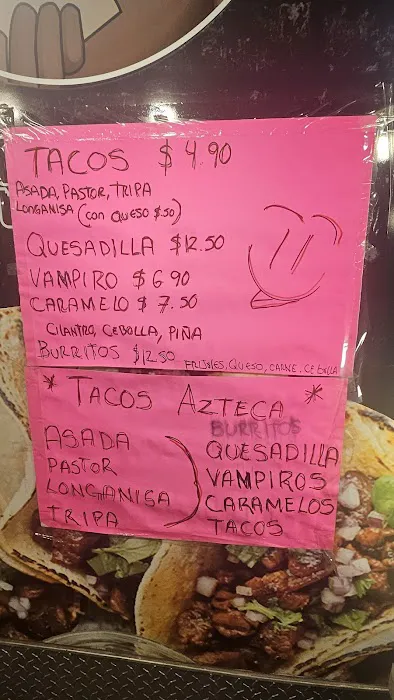 TACOS $ 4.90
ASADA, PASTOR, TRIPA
LONGANISA (CON QUESO $.50)
QUESADILLA $12.50
VAMPIRO $ 6.90
CARAMELO $ 7.50
CILANTRO, CEBOLLA, PIÑA
BURRITOS $12.50 FRIJOLES, QUESO, CARNE, CEBOLLA
* TACOS AZTECA *
ASADA
PASTOR
LONGANISA
TRIPA
BURRITOS
QUESADILLA
VAMPIROS
CARAMELOS
TACOS